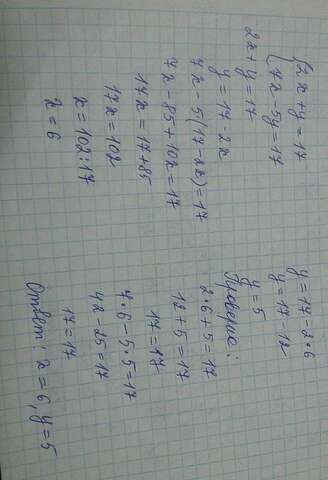 2x+y=17
7x-5y=17
2x+y=17
y=17-2x
7x-5(17-2x)=17
7x-85+10x=17
17x=17+85
17x=102
x=102:17
x=6
y=17-2·6
y=17-12
y=5
Проверка:
2·6+5=17
12+5=17
17=17
7·6-5·5=17
42-25=17
17=17
Ответ: x=6, y=5